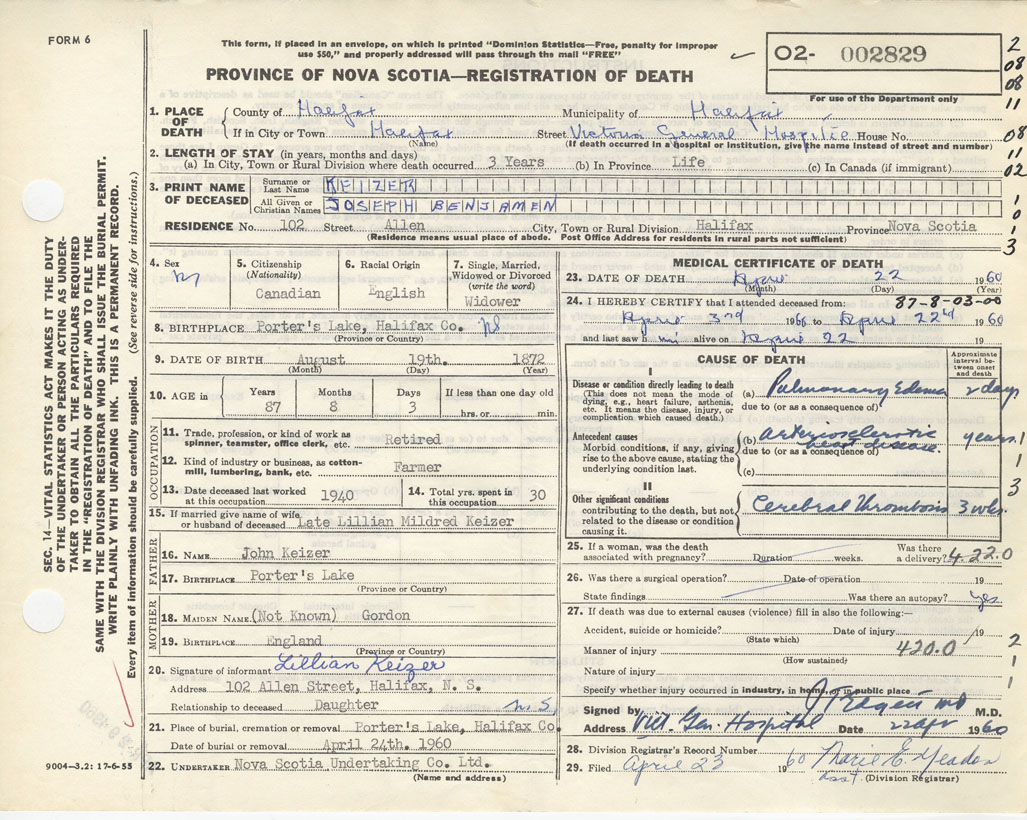 FORM 6
This form, if placed in an envelope, on which is printed "Dominion Statistics—Free, penalty for improper
use $50," and properly addressed will pass through the mail "FREE"
PROVINCE OF NOVA SCOTIA—REGISTRATION OF DEATH
02- 002829
For use of the Department only
1. PLACE OF DEATH
County of Halifax Municipality of Halifax
If in City or Town Halifax Street Victoria General Hospital House No.
(Name) (If death occurred in a hospital or institution, give the name instead of street and number)
2. LENGTH OF STAY (in years, months and days)
(a) In City, Town or Rural Division where death occurred 3 Years (b) In Province Life (c) In Canada (if immigrant)
3. PRINT NAME OF DECEASED
Surname or Last Name KEIZER
All Given or Christian Names JOSEPH BENJAMEN
RESIDENCE No. 102 Street Allen City, Town or Rural Division Halifax Province Nova Scotia
(Residence means usual place of abode. Post Office Address for residents in rural parts not sufficient)
4. Sex M
5. Citizenship (Nationality) Canadian
6. Racial Origin English
7. Single, Married, Widowed or Divorced (write the word) Widower
8. BIRTHPLACE Porter's Lake, Halifax Co. NS
(Province or Country)
9. DATE OF BIRTH August 19th. 1872
(Month) (Day) (Year)
10. AGE in Years 87 Months 8 Days 3 If less than one day old hrs. or min.
OCCUPATION
11. Trade, profession, or kind of work as spinner, teamster, office clerk, etc. Retired
12. Kind of industry or business, as cotton-mill, lumbering, bank, etc. Farmer
13. Date deceased last worked at this occupation 1940
14. Total yrs. spent in this occupation 30
15. If married give name of wife or husband of deceased Late Lillian Mildred Keizer
FATHER
16. NAME John Keizer
17. BIRTHPLACE Porter's Lake
(Province or Country)
MOTHER
18. MAIDEN NAME (Not Known) Gordon
19. BIRTHPLACE England
(Province or Country)
20. Signature of informant Lillian Keizer
Address 102 Allen Street, Halifax, N. S.
Relationship to deceased Daughter N.S.
21. Place of burial, cremation or removal Porter's Lake, Halifax Co.
Date of burial or removal April 24th. 1960
22. UNDERTAKER Nova Scotia Undertaking Co. Ltd.
(Name and address)
MEDICAL CERTIFICATE OF DEATH
23. DATE OF DEATH April 22 1960
(Month) (Day) (Year)
24. I HEREBY CERTIFY that I attended deceased from: 87-8-03-00
April 3rd 1960 to April 22nd 1960
and last saw him alive on April 22 19
CAUSE OF DEATH
Approximate interval between onset and death
I
Disease or condition directly leading to death
(This does not mean the mode of dying, e.g., heart failure, asthenia, etc. It means the disease, injury, or complication which caused death.)
(a) Pulmonary Edema 2 days
due to (or as a consequence of)
Antecedent causes
Morbid conditions, if any, giving rise to the above cause, stating the underlying condition last.
(b) arteriosclerotic heart disease. years
due to (or as a consequence of)
(c)
II
Other significant conditions
contributing to the death, but not related to the disease or condition causing it.
Cerebral thrombosis 3 wks.
25. If a woman, was the death associated with pregnancy? Duration weeks. Was there a delivery? 422.0
26. Was there a surgical operation? Date of operation 19
State findings Was there an autopsy? yes
27. If death was due to external causes (violence) fill in also the following:—
Accident, suicide or homicide? Date of injury 19
(State which)
Manner of injury 420.0
(How sustained)
Nature of injury
Specify whether injury occurred in industry, in home, or in public place
Signed by M.D.
Address Vict. Gen. Hospital Date 22 Apr 1960
28. Division Registrar's Record Number
29. Filed April 23 1960 Marie E. Meaden
Asst. (Division Registrar)
SEC. 14—VITAL STATISTICS ACT MAKES IT THE DUTY
OF THE UNDERTAKER OR PERSON ACTING AS UNDER-
TAKER TO OBTAIN ALL THE PARTICULARS REQUIRED
IN THE "REGISTRATION OF DEATH" AND TO FILE THE
SAME WITH THE DIVISION REGISTRAR WHO SHALL ISSUE THE BURIAL PERMIT.
WRITE PLAINLY WITH UNFADING INK. THIS IS A PERMANENT RECORD.
Every item of information should be carefully supplied. (See reverse side for instructions.)
9004—3.2: 17-6-55
2
08
08
11
08
11
02
1
0
3
1
1
3
2
1
1